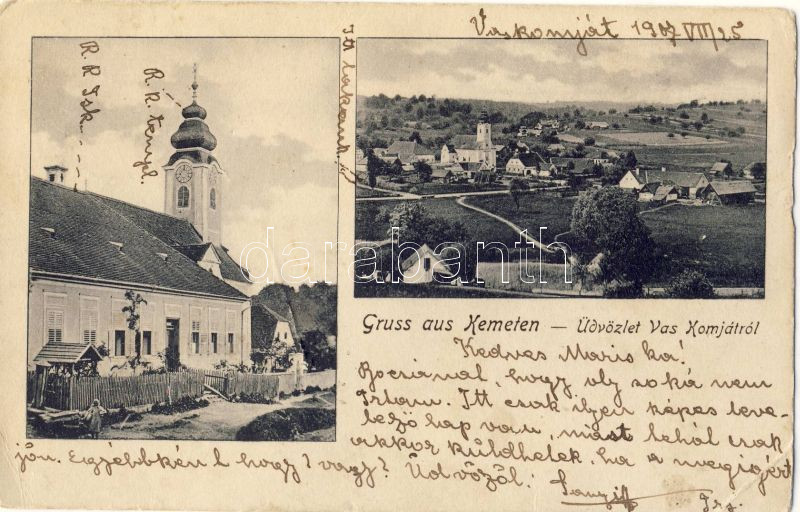 Vaskomját 1907 VIII/25
R. K. Isk.
R. K. templ.
Itt lakunk
darabanth
Gruss aus Kemeten — Üdvözlet Vas Komjátról
Kedves Mariska!
Bocsánat, hogy oly soká nem
írtam. Itt csak ilyen képes leve-
lező lap van, mást tehát csak
akkor küldhetek, ha a megígért
jön. Egyébként hogy vagy? Üdvözöl:
Irj.